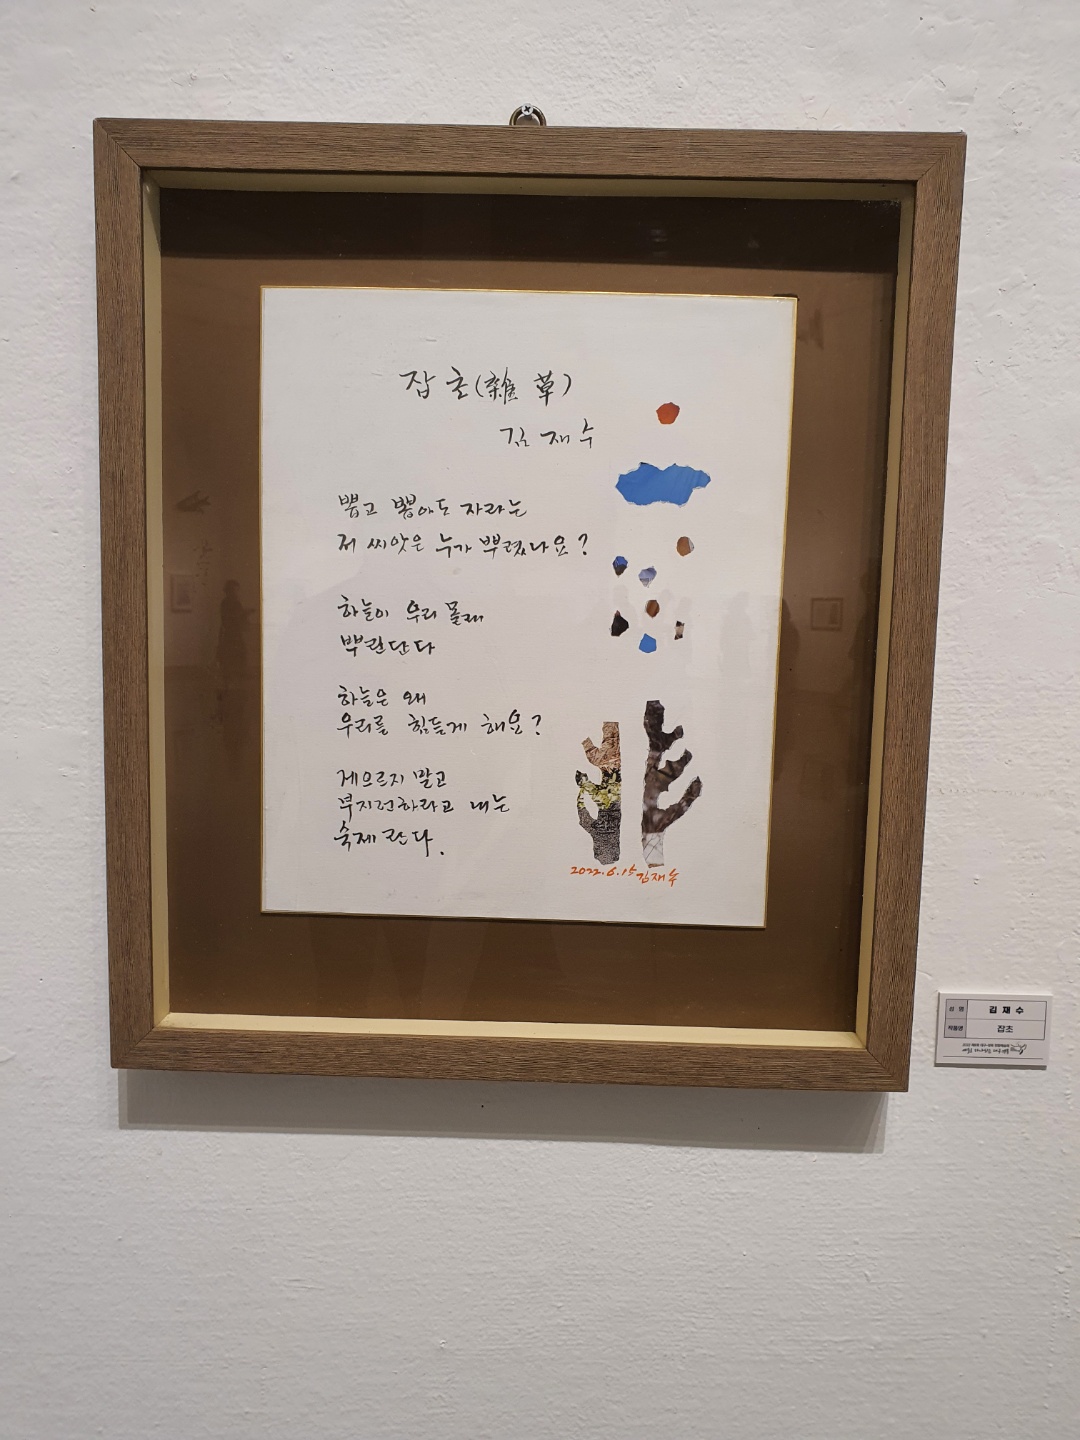 잡초(雜草)
김재수
뽑고 뽑아도 자라는
저 씨앗은 누가 뿌렸나요?
하늘이 우리 몰래
뿌린단다
하늘은 왜
우리를 힘들게 해요?
게으르지 말고
부지런하라고 내는
숙제란다.
2022.6.15 김재수
성 명 김 재 수
작품명 잡초